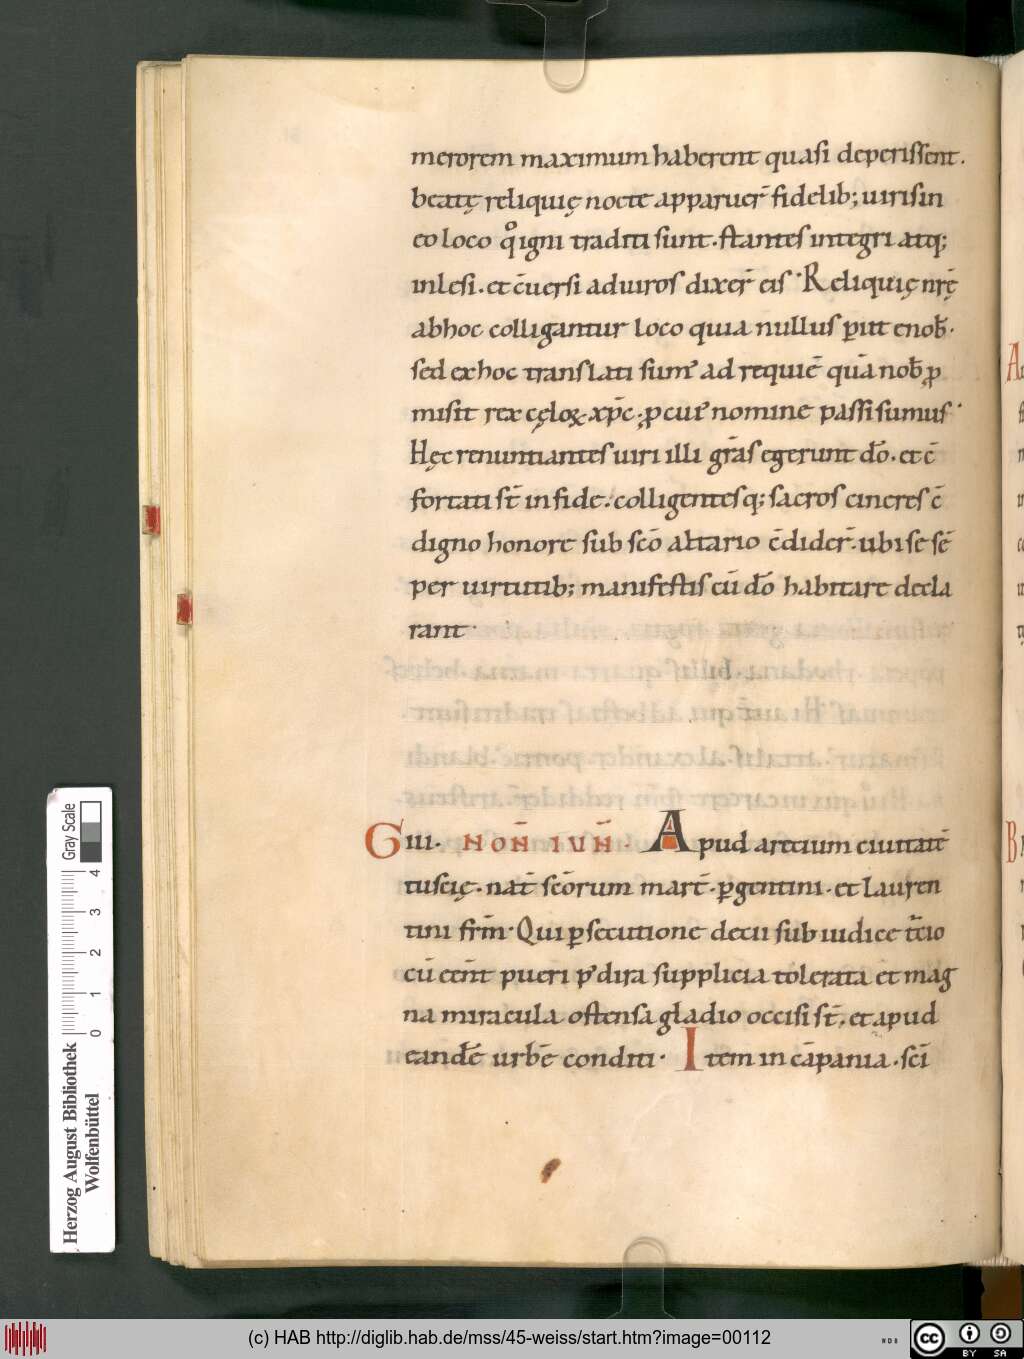 merorem maximum haberent quasi deperissent.
beatę reliquię nocte apparuer̄ fidelib; uiris in
eo loco qͦ igni traditi sunt. stantes integri atq;
inlesi. et c̄uersi ad uiros dixer̄ eis. Reliquię nr̄ę
ab hoc colligantur loco quia nullus ꝑiit e nob̄.
sed ex hoc translati sum᾽ ad requiē quā nob̄ ꝓ
misit rex cęloꝝ xp̄c. ꝓ cui᾽ nomine passi sumus.
Hęc renuntiantes uiri illi gr̄as egerunt dō. et c̄
fortati st̄ in fide. colligentesq; sacros cineres c̄
digno honore sub scō altario c̄dider̄. ubi se sē
per uirtutib; manifestis cū dō habitare decla
rant.
G iii. NON̄ IUN̄. Apud aretium ciuitatē
tuscię. nat̄ scōrum mart̄. ꝑgentini. et lauren
tini fr̄m. Qui ꝑsecutione decii sub iudice t̄cio
cū eēnt pueri p᾽ dira supplicia tolerata et mag
na miracula ostensa gladio occisi st̄. et apud
eandē urbē conditi. Item in cāpania. scī
Gray Scale
4
3
2
1
0
Herzog August Bibliothek
Wolfenbüttel
(c) HAB http://diglib.hab.de/mss/45-weiss/start.htm?image=00112
cc BY SA